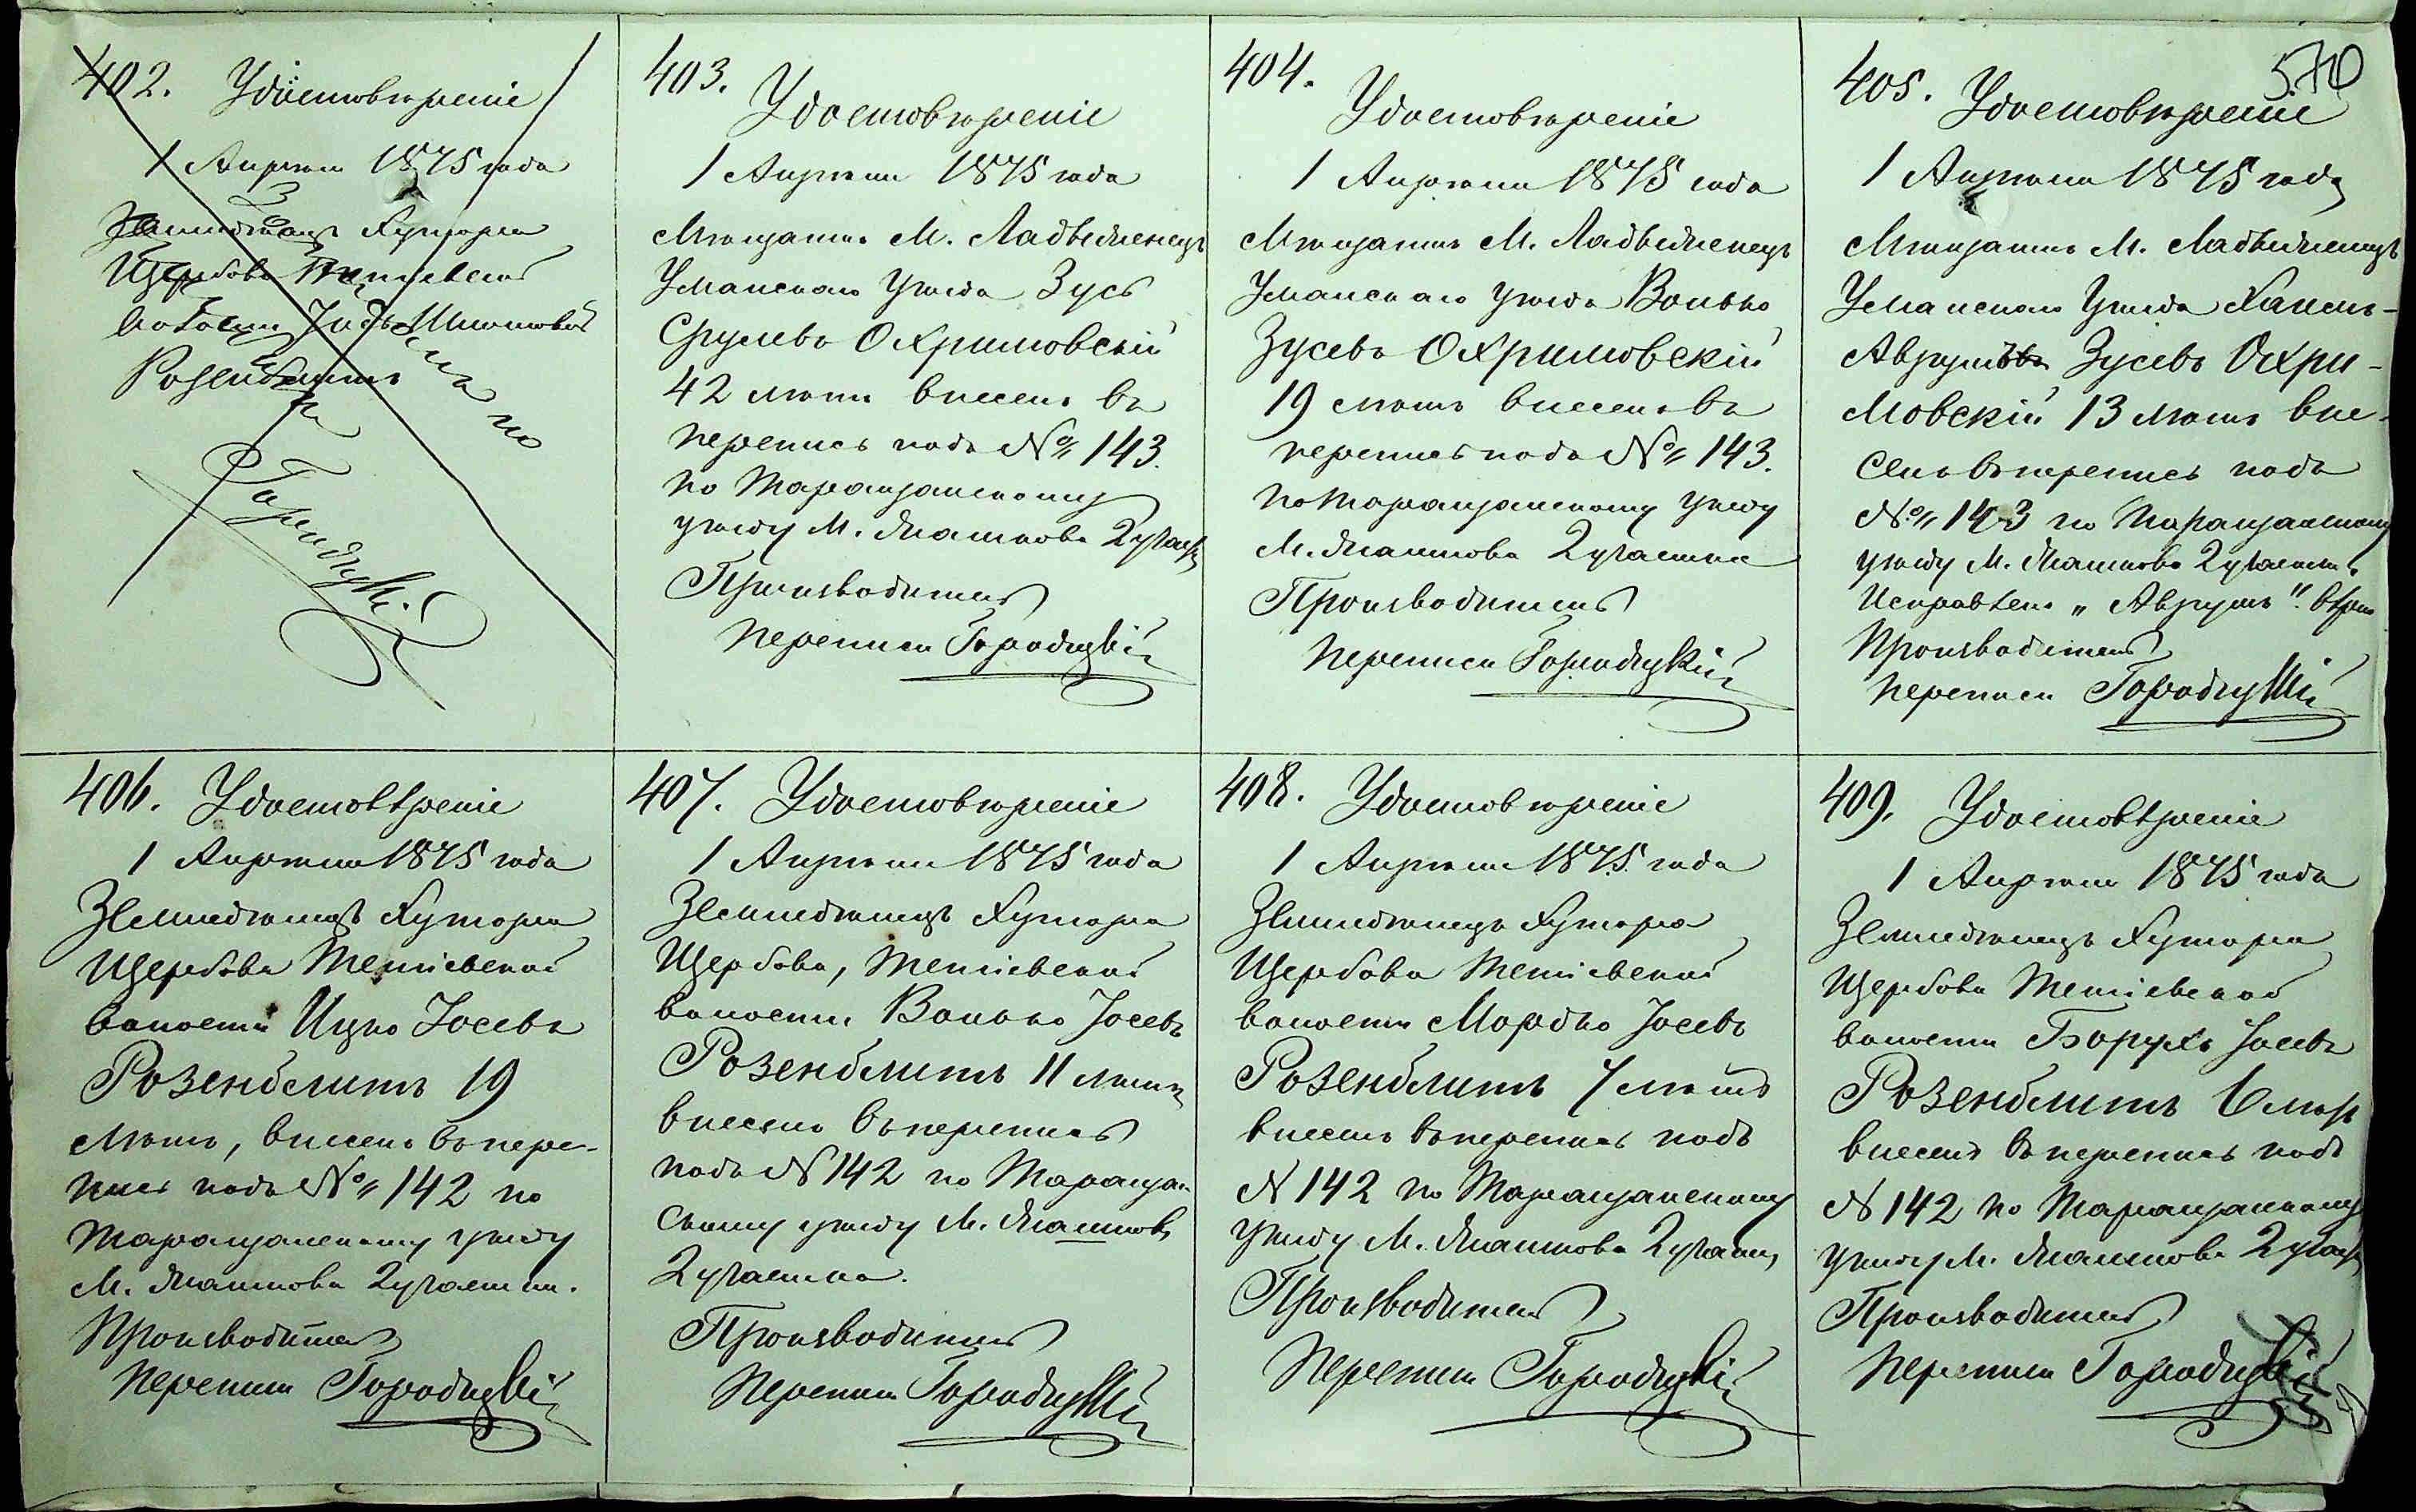 570
402. Удостовѣреніе
1 Апрѣля 1875 года
Земледѣлецъ Хутора
Щербова Тетіевской
Волости Іось Шлiомовъ
Розенблитъ
Городецкій
403.
Удостовѣреніе
1 Апрѣля 1875 года
Мѣщанинъ М. Ладыженецъ
Уманскаго Уѣзда Зусь
Срулевъ Охримовскій
42 лѣтъ внесенъ въ
перепись подъ № 143.
по Таращанскому
уѣзду М. Пятигоры 2 участк
Производитель
переписи Городецкій
404.
Удостовѣреніе
1 Апрѣля 1875 года
Мѣщанинъ М. Ладыженецъ
Уманскаго Уѣзда Волько
Зусевъ Охримовскій
19 лѣтъ внесенъ въ
перепись подъ № 143.
по Таращанскому уѣзду
М. 2 участка
Производитель
переписи Городецкій
405. Удостовѣреніе
1 Апрѣля 1875 года
Мѣщанинъ М. Ладыженецъ
Уманскаго Уѣзда Хаимъ-
Аврумъ Зусевъ Охри-
мовскій 13 лѣтъ вне-
сенъ въ перепись подъ
№ 143 по Таращанскому
уѣзду М. 2 участк.
Исправлен. „Аврумъ“. вѣрно
Производитель
переписи Городецкій
406. Удостовѣреніе
1 Апрѣля 1875 года
Земледѣлецъ Хутора
Щербова Тетіевской
волости Ицко Іосевъ
Розенблитъ 19
лѣтъ, внесенъ въ пере-
пись подъ № 142 по
Таращанскому уѣзду
М. 2 участк.
Производитель
переписи Городецкій
407. Удостовѣреніе
1 Апрѣля 1875 года
Земледѣлецъ Хутора
Щербова, Тетіевской
волости Волько Іосевъ
Розенблитъ 11 лѣтъ
внесенъ въ перепись
подъ N 142 по Таращан-
скому уѣзду М.
2 участка.
Производитель
переписи Городецкій
408. Удостовѣреніе
1 Апрѣля 1875 года
Земледѣлецъ Хутора
Щербова Тетіевской
волости Мордко Іосевъ
Розенблитъ 7 лѣтъ
внесенъ въ перепись подъ
N 142 по Таращанскому
уѣзду М. 2 участк
Производитель
переписи Городецкій
409. Удостовѣреніе
1 Апрѣля 1875 года
Земледѣлецъ Хутора
Щербова Тетіевской
волости Борухъ Іосевъ
Розенблитъ 6 лѣтъ
внесенъ въ перепись подъ
N 142 по Таращанскому
уѣзду М. 2 участк
Производитель
переписи Городецкій